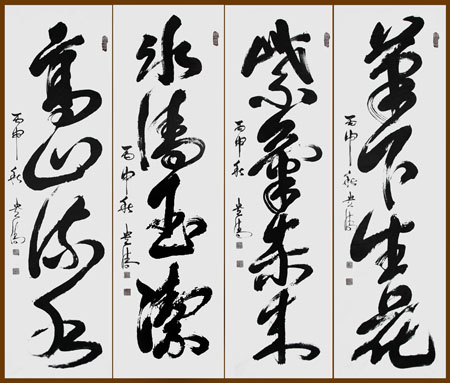 筆下生花
丙申秋
紫氣東來
丙申秋
冰清玉潔
丙申秋
高山流水
丙申秋